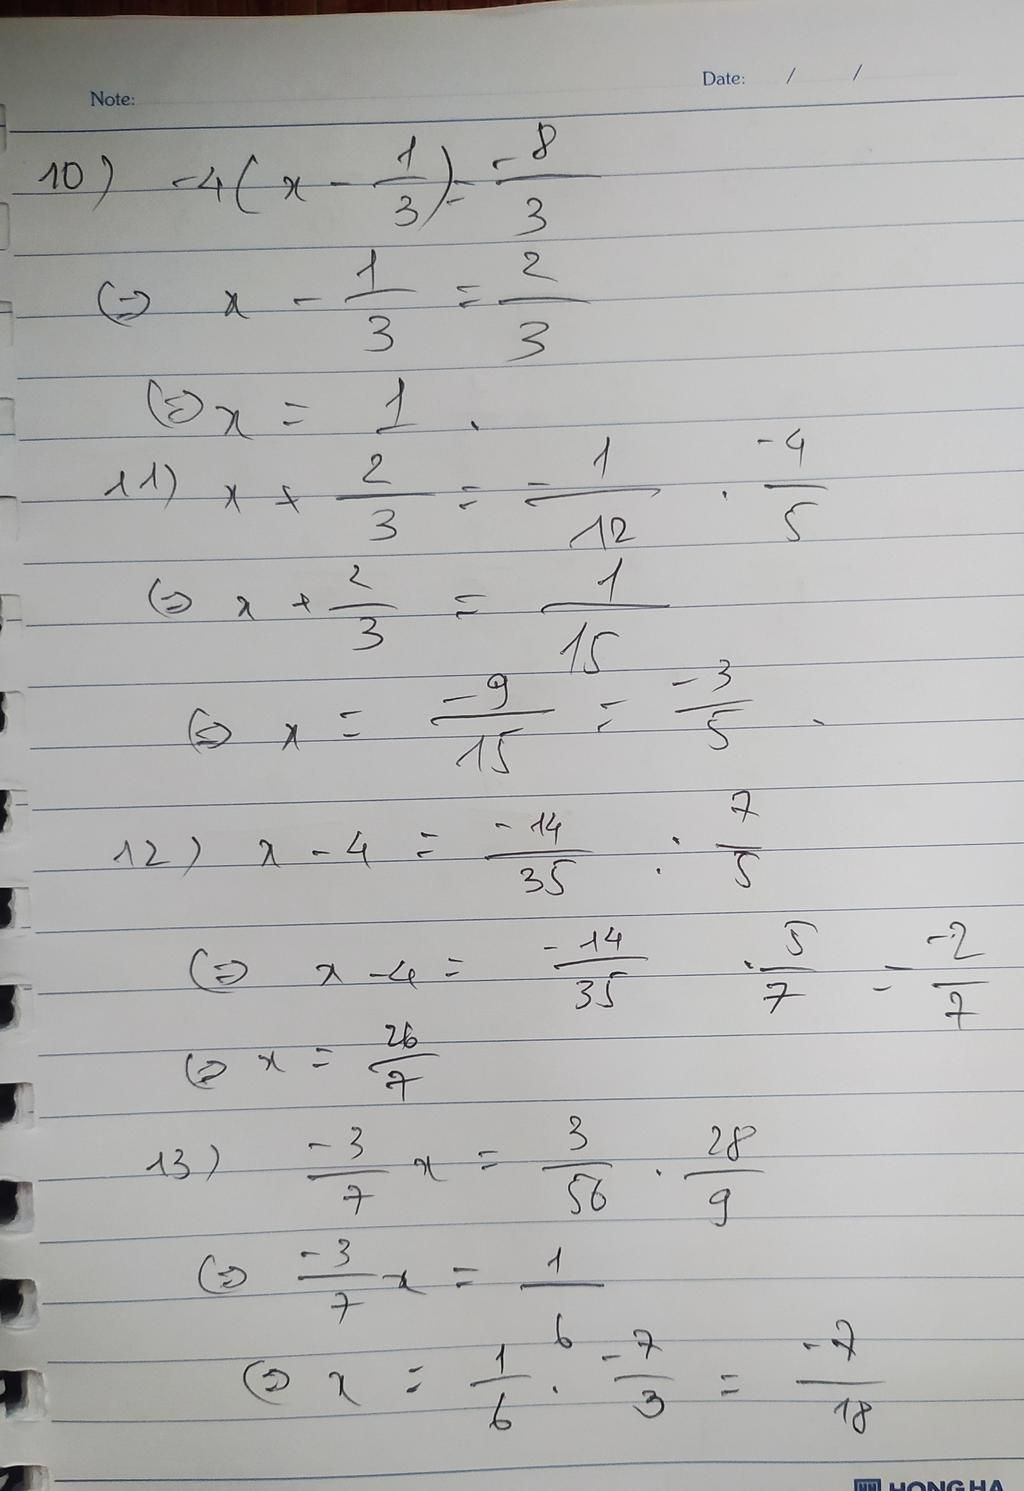 Note:
Date: / /
10) -4(x - 1/3) = -8/3
(=) x - 1/3 = 2/3
(=) x = 1.
11) x + 2/3 = -1/12 . -4/5
(=) x + 2/3 = 1/15
(=) x = -9/15 = -3/5.
12) x - 4 = -14/35 : 7/5
(=) x - 4 = -14/35 . 5/7 = -2/7
(=) x = 26/7
13) -3/7 x = 3/56 . 28/9
(=) -3/7 x = 1/6
(=) x = 1/6 . -7/3 = -7/18
HONG HA